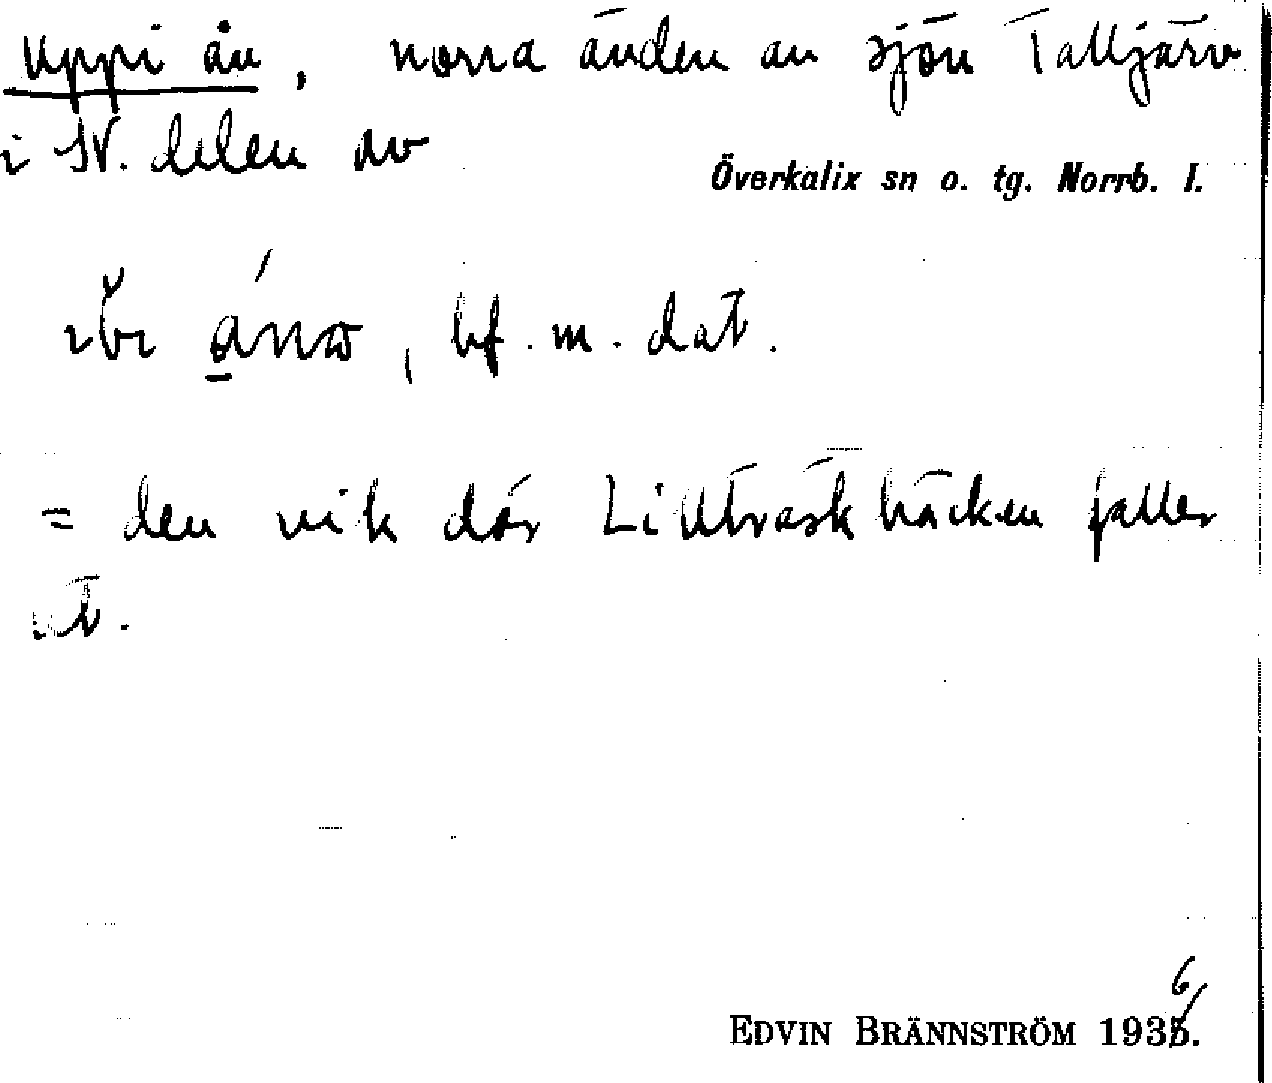 Uppi ån, norra änden av sjön Talljärv
i N. delen av
Överkalix sn o. tg. Norrb. l.
bf. m. dat.
= den vik där Lillträskbäcken faller
ut.
6
EDVIN BRÄNNSTRÖM 1935.